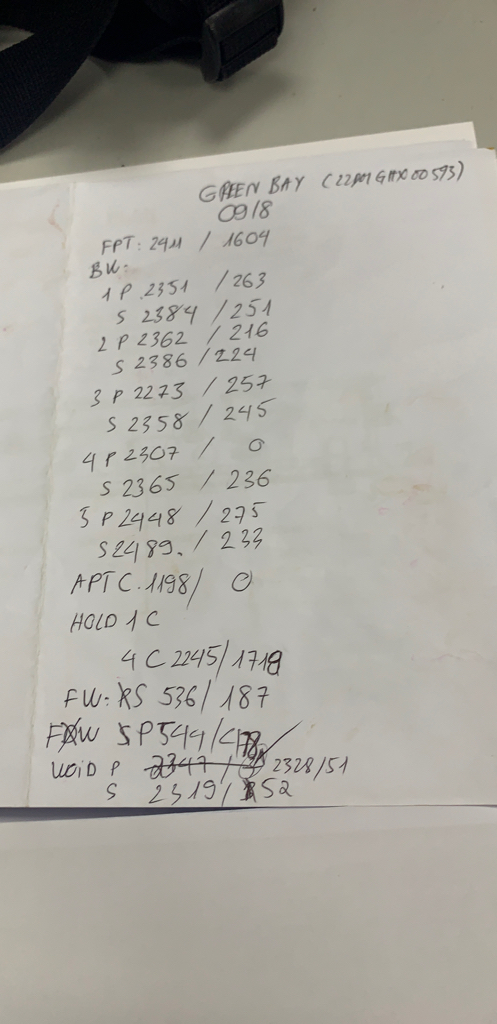 GREEN BAY (22AMGHX00593)
09/8
FPT: 2411 / 1604
BW:
1 P 2351 / 263
S 2384 / 251
2 P 2362 / 216
S 2386 / 224
3 P 2273 / 257
S 2358 / 245
4 P 2307 / 0
S 2365 / 236
5 P 2448 / 275
S 2489. / 233
APT C. 1198/ 0
HOLD 1 C
4 C 2245/1718
FW: S 536/ 187
FW P 544/
VOID P 2347 / 2328/51
S 2319/ 52